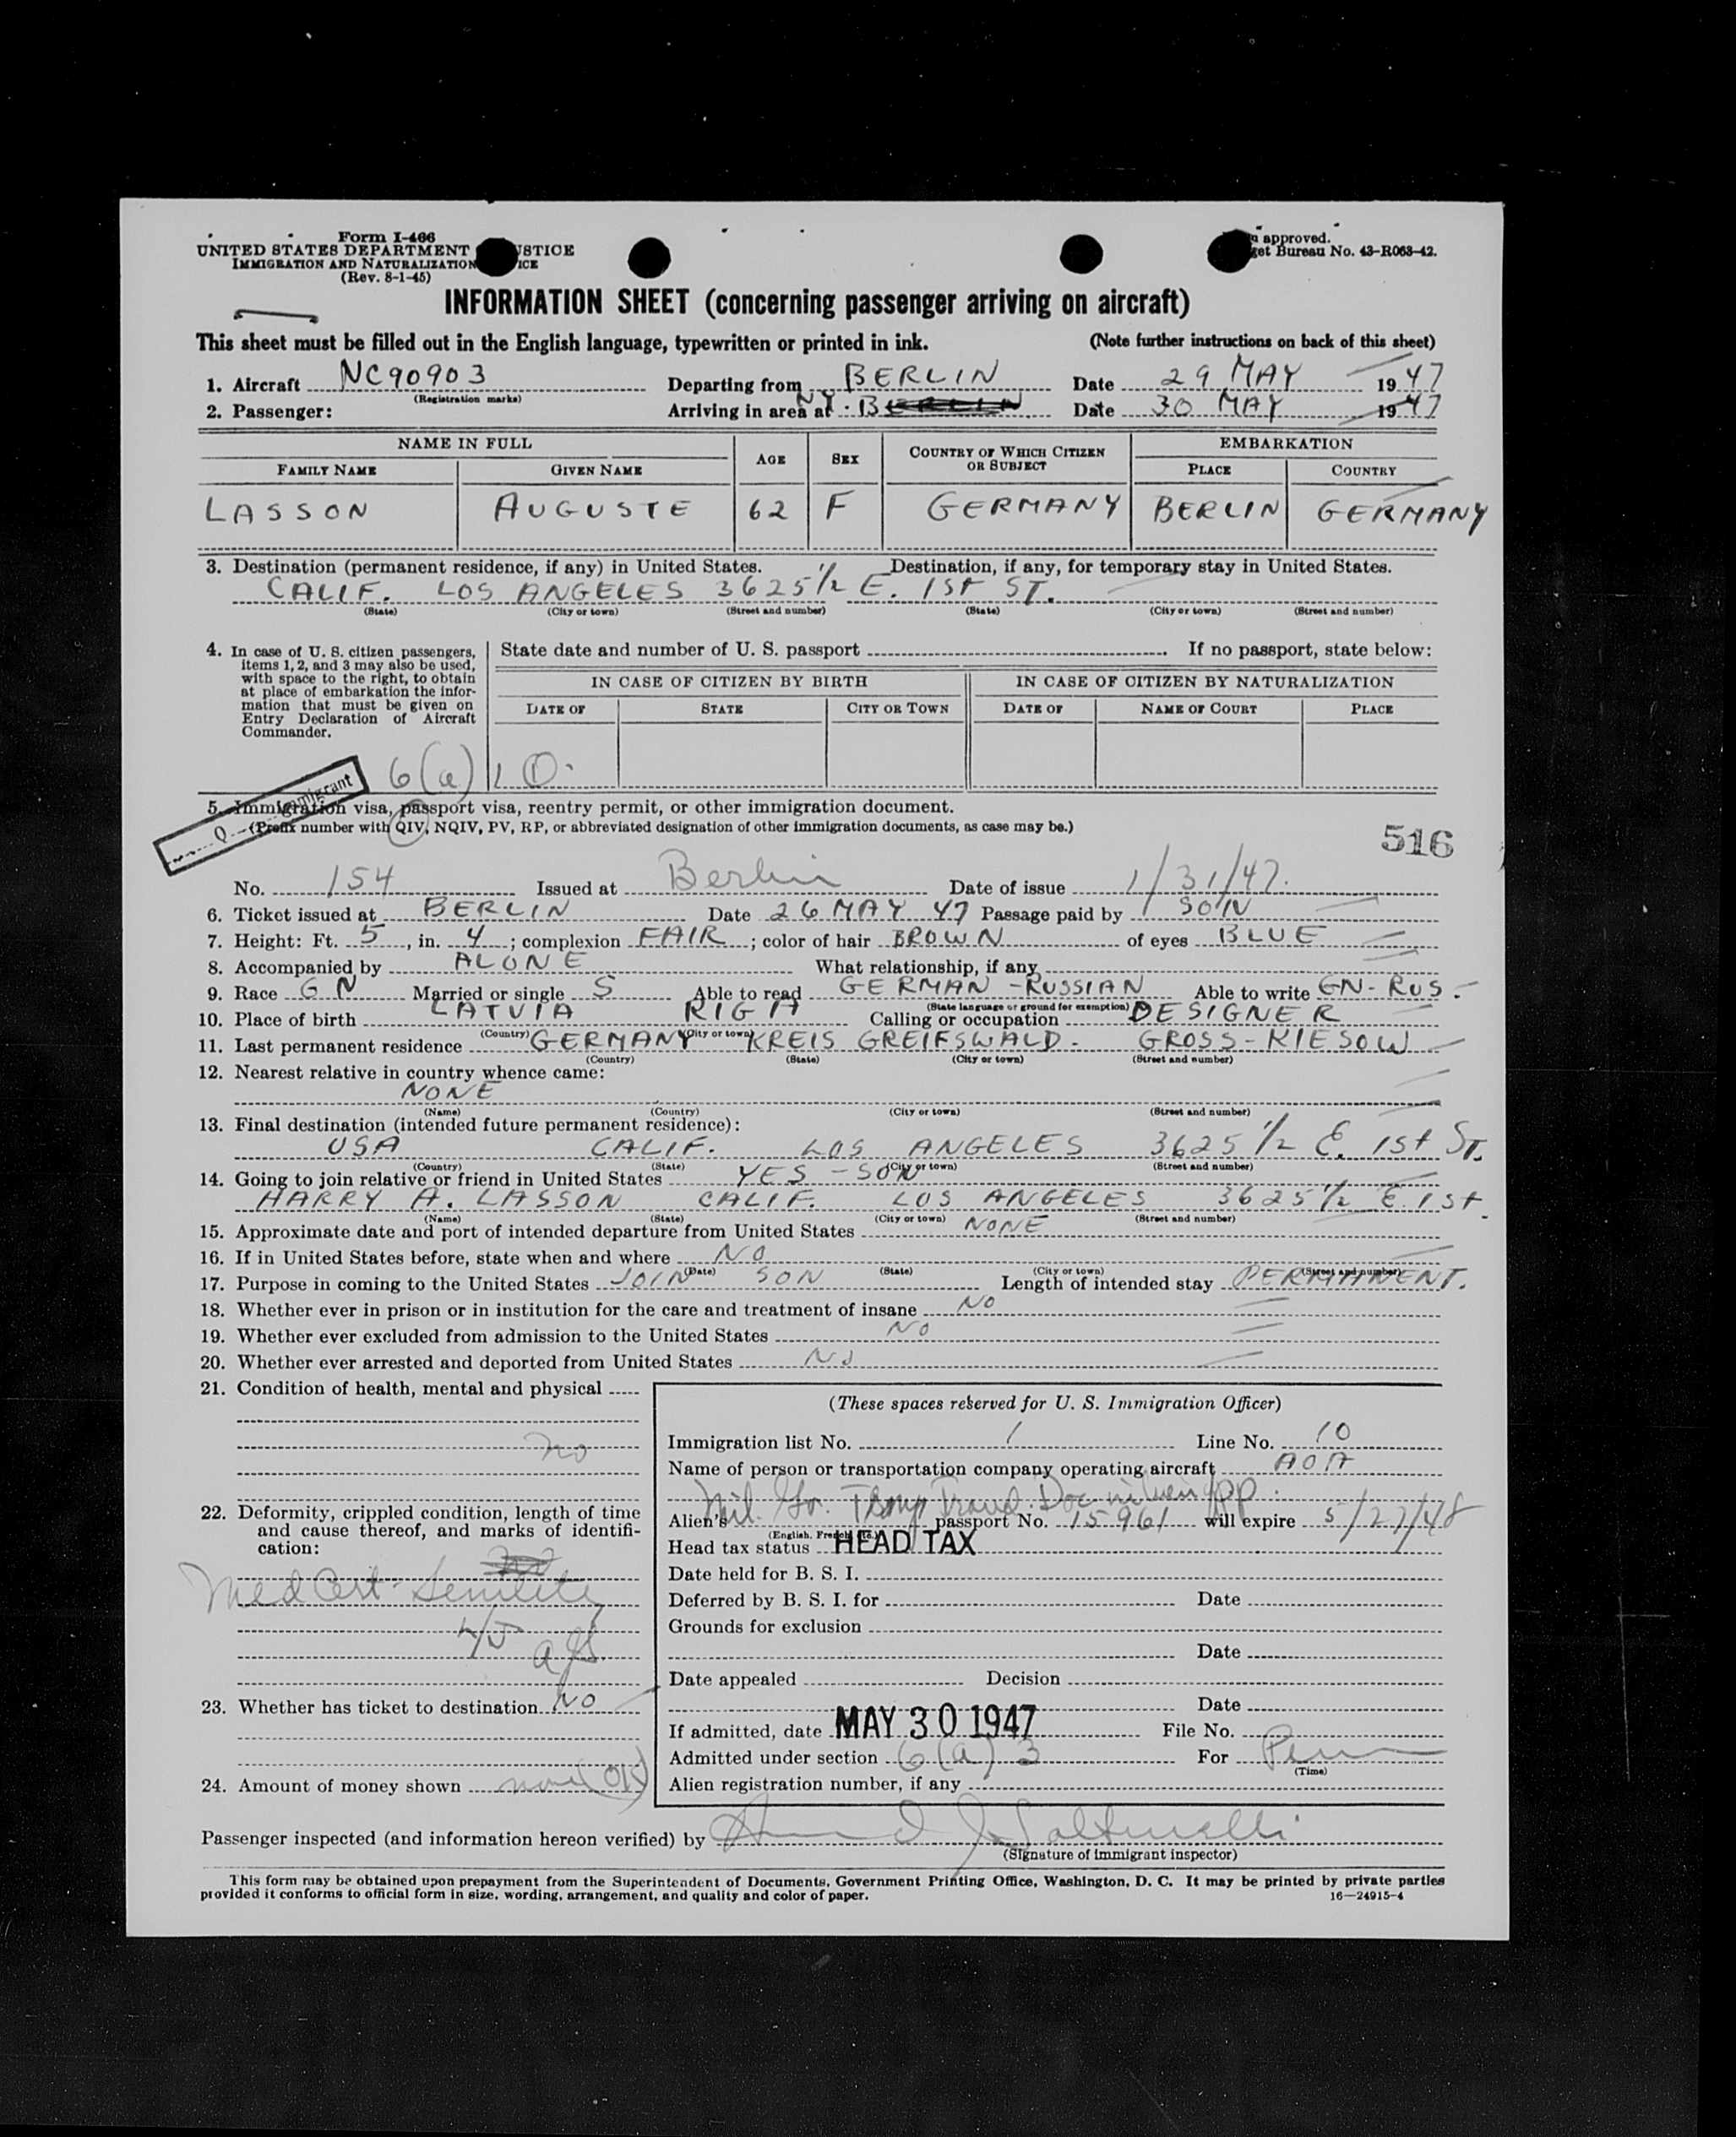 Form I-466
UNITED STATES DEPARTMENT JUSTICE
IMMIGRATION AND NATURALIZATION
(Rev. 8-1-45)
approved.
Bureau No. 43-R063-42.
INFORMATION SHEET (concerning passenger arriving on aircraft)
This sheet must be filled out in the English language, typewritten or printed in ink. (Note further instructions on back of this sheet)
1. Aircraft NC90903 Departing from BERLIN Date 29 MAY 1947
(Registration marks)
2. Passenger: Arriving in area at NY. Date 30 MAY 1947
NAME IN FULL AGE SEX COUNTRY OF WHICH CITIZEN OR SUBJECT EMBARKATION
FAMILY NAME GIVEN NAME PLACE COUNTRY
LASSON AUGUSTE 62 F GERMANY BERLIN GERMANY
3. Destination (permanent residence, if any) in United States. Destination, if any, for temporary stay in United States.
CALIF. LOS ANGELES 3625 1/2 E. 1ST ST.
(State) (City or town) (Street and number) (State) (City or town) (Street and number)
4. In case of U. S. citizen passengers,
items 1, 2, and 3 may also be used,
with space to the right, to obtain
at place of embarkation the infor-
mation that must be given on
Entry Declaration of Aircraft
Commander.
State date and number of U. S. passport If no passport, state below:
IN CASE OF CITIZEN BY BIRTH IN CASE OF CITIZEN BY NATURALIZATION
DATE OF STATE CITY OR TOWN DATE OF NAME OF COURT PLACE
6(a)
5. Immigration visa, passport visa, reentry permit, or other immigration document.
(Prefix number with QIV, NQIV, PV, RP, or abbreviated designation of other immigration documents, as case may be.)
516
No. 154 Issued at Berlin Date of issue 1/31/47.
6. Ticket issued at BERLIN Date 26 MAY 47 Passage paid by SON
7. Height: Ft. 5, in. 4; complexion FAIR; color of hair BROWN of eyes BLUE
8. Accompanied by ALONE What relationship, if any
9. Race GN Married or single S Able to read GERMAN-RUSSIAN Able to write GN-RUS.
(State language or ground for exemption)
10. Place of birth LATVIA RIGA Calling or occupation DESIGNER
(Country) (City or town)
11. Last permanent residence GERMANY KREIS GREIFSWALD - GROSS-KIESOW
(Country) (State) (City or town) (Street and number)
12. Nearest relative in country whence came:
NONE
(Name) (Country) (City or town) (Street and number)
13. Final destination (intended future permanent residence):
USA CALIF. LOS ANGELES 3625 1/2 E. 1st ST.
(Country) (State) (City or town) (Street and number)
14. Going to join relative or friend in United States YES - SON
HARRY A. LASSON CALIF. LOS ANGELES 3625 1/2 E. 1st.
(Name) (State) (City or town) (Street and number)
15. Approximate date and port of intended departure from United States NONE
16. If in United States before, state when and where NO
(Date) (State) (City or town) (Street and number)
17. Purpose in coming to the United States JOIN SON Length of intended stay PERMANENT.
18. Whether ever in prison or in institution for the care and treatment of insane NO
19. Whether ever excluded from admission to the United States NO
20. Whether ever arrested and deported from United States NO
21. Condition of health, mental and physical
no
22. Deformity, crippled condition, length of time
and cause thereof, and marks of identifi-
cation:
Med Cert - Senility
23. Whether has ticket to destination NO
24. Amount of money shown none OK
(These spaces reserved for U. S. Immigration Officer)
Immigration list No. 1 Line No. 10
Name of person or transportation company operating aircraft AOA
Alien's passport No. 15961 will expire 5/27/48
(English, French, etc.)
Head tax status HEAD TAX
Date held for B. S. I.
Deferred by B. S. I. for Date
Grounds for exclusion
Date
Date appealed Decision
Date
If admitted, date MAY 30 1947 File No.
Admitted under section 6(a) 3 For Perm
(Time)
Alien registration number, if any
Passenger inspected (and information hereon verified) by
(Signature of immigrant inspector)
This form may be obtained upon prepayment from the Superintendent of Documents, Government Printing Office, Washington, D. C. It may be printed by private parties
provided it conforms to official form in size, wording, arrangement, and quality and color of paper. 16—24915-4